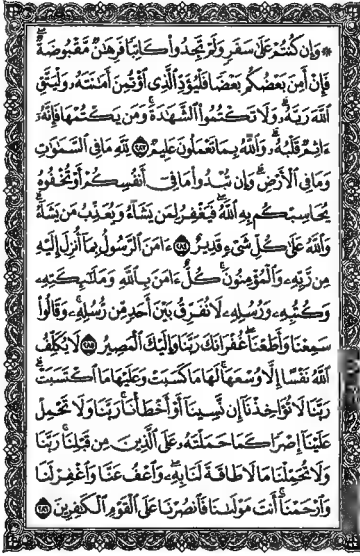 ۞ وَإِن كُنتُمْ عَلَىٰ سَفَرٍ وَلَمْ تَجِدُوا۟ كَاتِبًا فَرِهَٰنٌ مَّقْبُوضَةٌ ۖ
فَإِنْ أَمِنَ بَعْضُكُم بَعْضًا فَلْيُؤَدِّ ٱلَّذِى ٱؤْتُمِنَ أَمَٰنَتَهُۥ وَلْيَتَّقِ
ٱللَّهَ رَبَّهُۥ ۗ وَلَا تَكْتُمُوا۟ ٱلشَّهَٰدَةَ ۚ وَمَن يَكْتُمْهَا فَإِنَّهُۥٓ
ءَاثِمٌ قَلْبُهُۥ ۗ وَٱللَّهُ بِمَا تَعْمَلُونَ عَلِيمٌ ۝٢٨٣ لِّلَّهِ مَا فِى ٱلسَّمَٰوَٰتِ
وَمَا فِى ٱلْأَرْضِ ۗ وَإِن تُبْدُوا۟ مَا فِىٓ أَنفُسِكُمْ أَوْ تُخْفُوهُ
يُحَاسِبْكُم بِهِ ٱللَّهُ ۖ فَيَغْفِرُ لِمَن يَشَآءُ وَيُعَذِّبُ مَن يَشَآءُ ۗ
وَٱللَّهُ عَلَىٰ كُلِّ شَىْءٍ قَدِيرٌ ۝٢٨٤ ءَامَنَ ٱلرَّسُولُ بِمَآ أُنزِلَ إِلَيْهِ
مِن رَّبِّهِۦ وَٱلْمُؤْمِنُونَ ۚ كُلٌّ ءَامَنَ بِٱللَّهِ وَمَلَٰٓئِكَتِهِۦ
وَكُتُبِهِۦ وَرُسُلِهِۦ لَا نُفَرِّقُ بَيْنَ أَحَدٍ مِّن رُّسُلِهِۦ ۚ وَقَالُوا۟
سَمِعْنَا وَأَطَعْنَا ۖ غُفْرَانَكَ رَبَّنَا وَإِلَيْكَ ٱلْمَصِيرُ ۝٢٨٥ لَا يُكَلِّفُ
ٱللَّهُ نَفْسًا إِلَّا وُسْعَهَا ۚ لَهَا مَا كَسَبَتْ وَعَلَيْهَا مَا ٱكْتَسَبَتْ ۗ
رَبَّنَا لَا تُؤَاخِذْنَآ إِن نَّسِينَآ أَوْ أَخْطَأْنَا ۚ رَبَّنَا وَلَا تَحْمِلْ
عَلَيْنَآ إِصْرًا كَمَا حَمَلْتَهُۥ عَلَى ٱلَّذِينَ مِن قَبْلِنَا ۚ رَبَّنَا
وَلَا تُحَمِّلْنَا مَا لَا طَاقَةَ لَنَا بِهِۦ ۖ وَٱعْفُ عَنَّا وَٱغْفِرْ لَنَا
وَٱرْحَمْنَآ ۚ أَنتَ مَوْلَىٰنَا فَٱنصُرْنَا عَلَى ٱلْقَوْمِ ٱلْكَٰفِرِينَ ۝٢٨٦